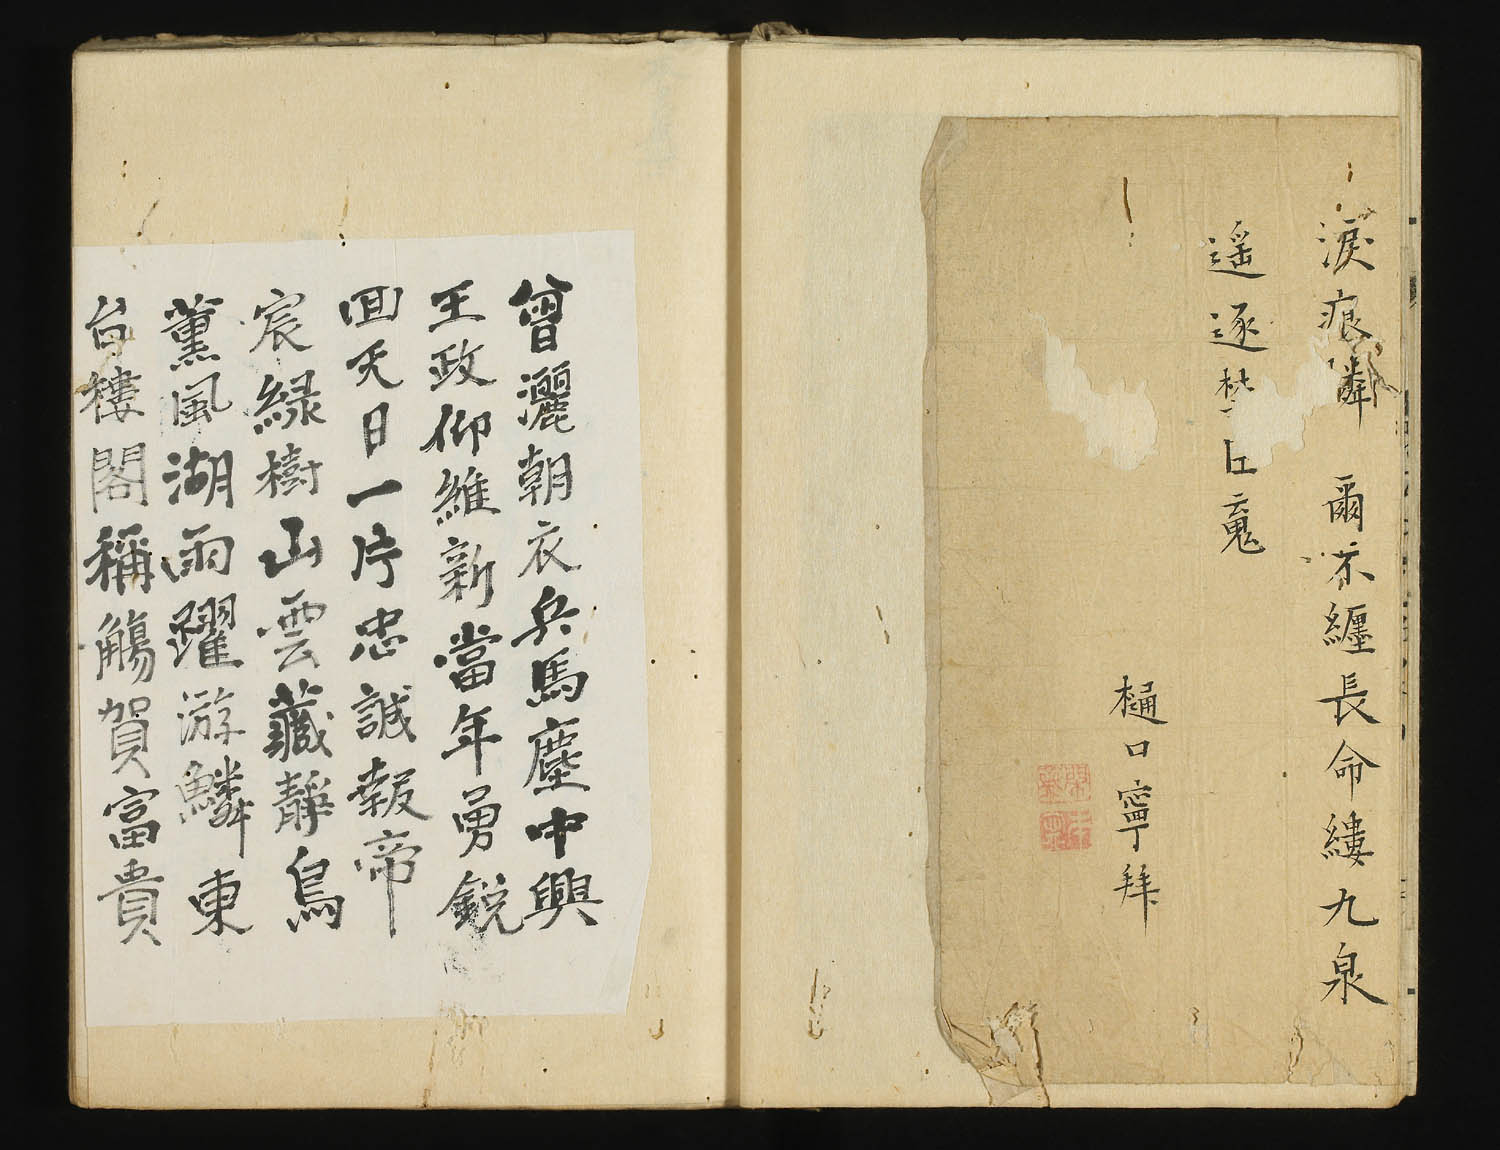 淚痕隣 爾不纏長命縷九泉
遥逐楚江魂
樋口寧拜
曾灑朝衣兵馬塵中興
王政仰維新當年勇銳
回天日一片忠誠報帝
宸緑樹山雲藏靜鳥
薰風湖雨躍游鱗東
台樓閣稱觴賀富貴